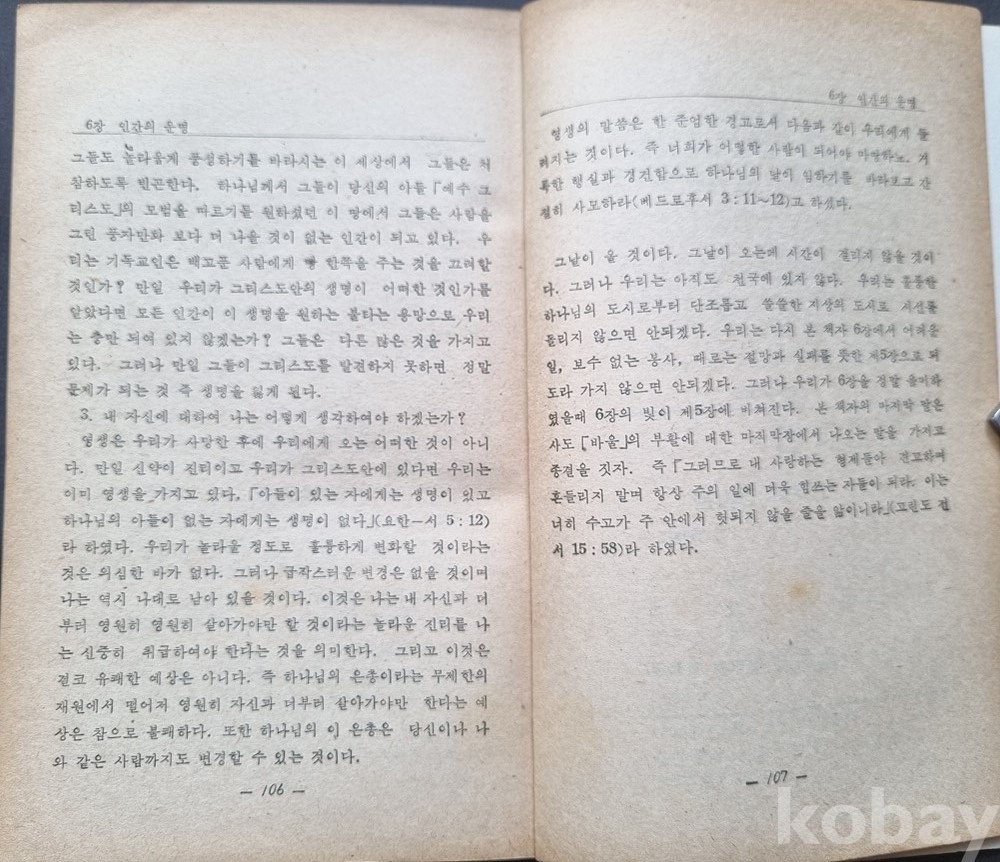 6장 인간의 운명
그들도 놀라웁게 풍성하기를 바라시는 이 세상에서 그들은 처
참하도록 빈곤한다. 하나님께서 그들이 당신의 아들 「예수 그
리스도」의 모범을 따르기를 원하셨던 이 땅에서 그들은 사람을
그린 풍자만화 보다 더 나을 것이 없는 인간이 되고 있다. 우
리는 기독교인은 배고푼 사람에게 빵 한쪽을 주는 것을 꺼려할
것인가? 만일 우리가 그리스도안의 생명이 어떠한 것인가를
알았다면 모든 인간이 이 생명을 원하는 불타는 욕망으로 우리
는 충만 되여 있지 않겠는가? 그들은 다른 많은 것을 가지고
있다. 그러나 만일 그들이 그리스도를 발견하지 못하면 정말
문제가 되는 것 즉 생명을 잃게 된다.
3. 내 자신에 대하여 나는 어떻게 생각하여야 하겠는가?
영생은 우리가 사망한 후에 우리에게 오는 어떠한 것이 아니
다. 만일 신약이 진리이고 우리가 그리스도안에 있다면 우리는
이미 영생을 가지고 있다. 「아들이 있는 자에게는 생명이 있고
하나님의 아들이 없는 자에게는 생명이 없다」(요한一서 5 : 12)
라 하였다. 우리가 놀라울 정도로 훌륭하게 변화할 것이라는
것은 의심한 바가 없다. 그러나 급작스러운 변경은 없을 것이며
나는 역시 나대로 남아 있을 것이다. 이것은 나는 내 자신과 더
부러 영원히 영원히 살아가야만 할 것이라는 놀라운 진리를 나
는 신중히 취급하여야 한다는 것을 의미한다. 그리고 이것은
결코 유쾌한 예상은 아니다. 즉 하나님의 은총이라는 무제한의
재원에서 떨어저 영원히 자신과 더부러 살아가야만 한다는 예
상은 참으로 불쾌하다. 또한 하나님의 이 은총은 당신이나 나
와 같은 사람까지도 변경할 수 있는 것이다.
— 106 —
6장 인간의 운명
영생의 말씀은 한 준엄한 경고로서 다음과 같이 우리에게 들
려지는 것이다. 즉 너희가 어떠한 사람이 되어야 마땅하뇨. 거
룩한 행실과 경건함으로 하나님의 날이 임하기를 바라보고 간
절히 사모하라(베드로후서 3 : 11~12)고 하셨다.
그날이 올 것이다. 그날이 오는데 시간이 걸리지 않을 것이
다. 그러나 우리는 아직도 천국에 있지 않다. 우리는 훌륭한
하나님의 도시로부터 단조롭고 쓸쓸한 지상의 도시로 시선를
돌리지 않으면 안되겠다. 우리는 다시 본 책자 6장에서 어려운
일, 보수 없는 봉사, 때로는 절망과 실패를 뜻한 제5장으로 되
도라 가지 않으면 안되겠다. 그러나 우리가 6장을 정말 음미하
였을때 6장의 빛이 제5장에 비쳐진다. 본 책자의 마지막 말은
사도 「바울」의 부활에 대한 마지막장에서 나오는 말을 가지고
종결을 짓자. 즉 「그러므로 내 사랑하는 형제들아 견고하며
흔들리지 말며 항상 주의 일에 더욱 힘쓰는 자들이 되라. 이는
너히 수고가 주 안에서 헛되지 않을 줄을 앎이니라」(고린도 전
서 15 : 58)라 하였다.
— 107 —
kobay